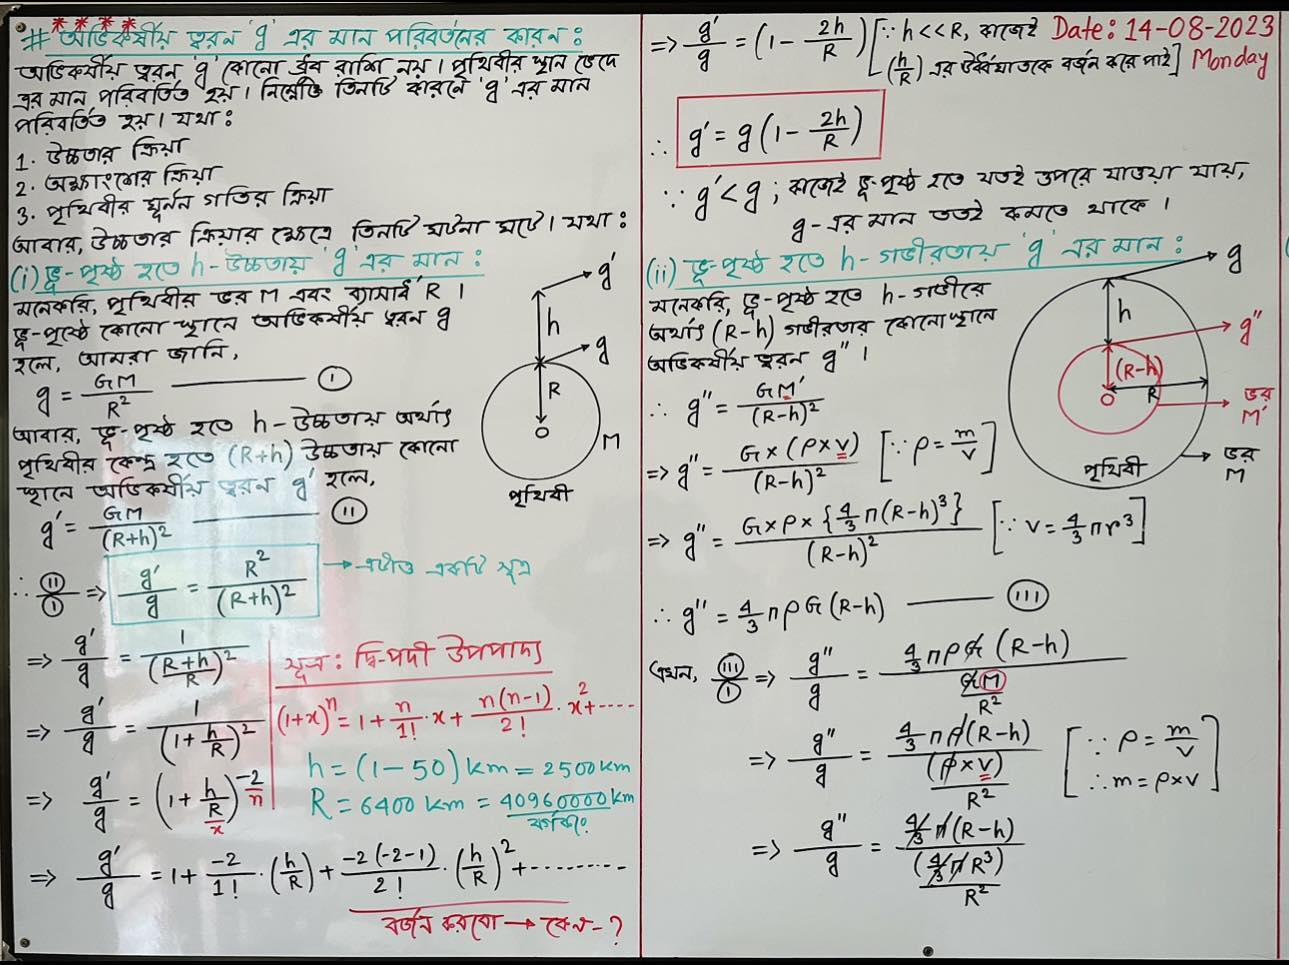 ****
# অভিকর্ষীয় ত্বরন 'g' এর মান পরিবর্তনের কারন :
অভিকর্ষীয় ত্বরন 'g' কোনো ধ্রুব রাশি নয়। পৃথিবীর স্থান ভেদে
এর মান পরিবর্তিত হয়। নিম্নোক্ত তিনটি কারনে 'g' এর মান
পরিবর্তিত হয়। যথা :
1. উচ্চতার ক্রিয়া
2. অক্ষাংশের ক্রিয়া
3. পৃথিবীর ঘূর্নন গতির ক্রিয়া
আবার, উচ্চতার ক্রিয়ার ক্ষেত্রে তিনটি ঘটনা ঘটে। যথা :
(i) ভূ-পৃষ্ঠ হতে h-উচ্চতায় 'g' এর মান :
মনেকরি, পৃথিবীর ভর M এবং ব্যাসার্ধ R ।
ভূ-পৃষ্ঠে কোনো স্থানে অভিকর্ষীয় ত্বরন g
হলে, আমরা জানি,
g = GM/R² ——— (I)
আবার, ভূ-পৃষ্ঠ হতে h-উচ্চতায় অর্থাৎ
পৃথিবীর কেন্দ্র হতে (R+h) উচ্চতায় কোনো
স্থানে অভিকর্ষীয় ত্বরন g' হলে,
g' = GM/(R+h)² ——— (II)
g'
h
g
R
O
M
পৃথিবী
∴ (II)/(I) ⇒ g'/g = R²/(R+h)² → এটাও একটি সূত্র
⇒ g'/g = 1/((R+h)/R)²
⇒ g'/g = 1/(1+h/R)²
⇒ g'/g = (1+h/R)^-2
x
n
সূত্র : দ্বি-পদী উপপাদ্য
(1+x)ⁿ = 1 + n/1!·x + n(n-1)/2!·x² + ----
h = (1-50) km = 2500 km
R = 6400 km = 40960000 km
⇒ g'/g = 1 + -2/1!·(h/R) + -2(-2-1)/2!·(h/R)² + ---------
বর্জন করবো → কেন-?
⇒ g'/g = (1 - 2h/R) [∵ h<<R, কাজেই
(h/R) এর উর্ধ্বঘাতকে বর্জন করে পাই]
Date: 14-08-2023
Monday
∴ g' = g(1 - 2h/R)
∵ g' < g ; কাজেই ভূ-পৃষ্ঠ হতে যতই উপরে যাওয়া যায়,
g-এর মান ততই কমতে থাকে ।
(ii) ভূ-পৃষ্ঠ হতে h-গভীরতায় 'g' এর মান :
মনেকরি, ভূ-পৃষ্ঠ হতে h-গভীরে
অর্থাৎ (R-h) গভীরতার কোনো স্থানে
অভিকর্ষীয় ত্বরন g'' ।
∴ g'' = GM'/(R-h)²
⇒ g'' = G×(ρ×v)/(R-h)² [∵ ρ = m/v]
⇒ g'' = G×ρ×{4/3 π(R-h)³}/(R-h)² [∵ v = 4/3 πr³]
g
h
g''
(R-h)
O
R
ভর
M'
ভর
M
পৃথিবী
∴ g'' = 4/3 πρG(R-h) ——— (III)
এখন, (III)/(I) ⇒ g''/g = 4/3 πρG(R-h)/(GM/R²)
⇒ g''/g = 4/3 πρ(R-h)/((ρ×v)/R²) [∵ ρ = m/v
∴ m = ρ×v]
⇒ g''/g = 4/3 π(R-h)/((4/3 πR³)/R²)